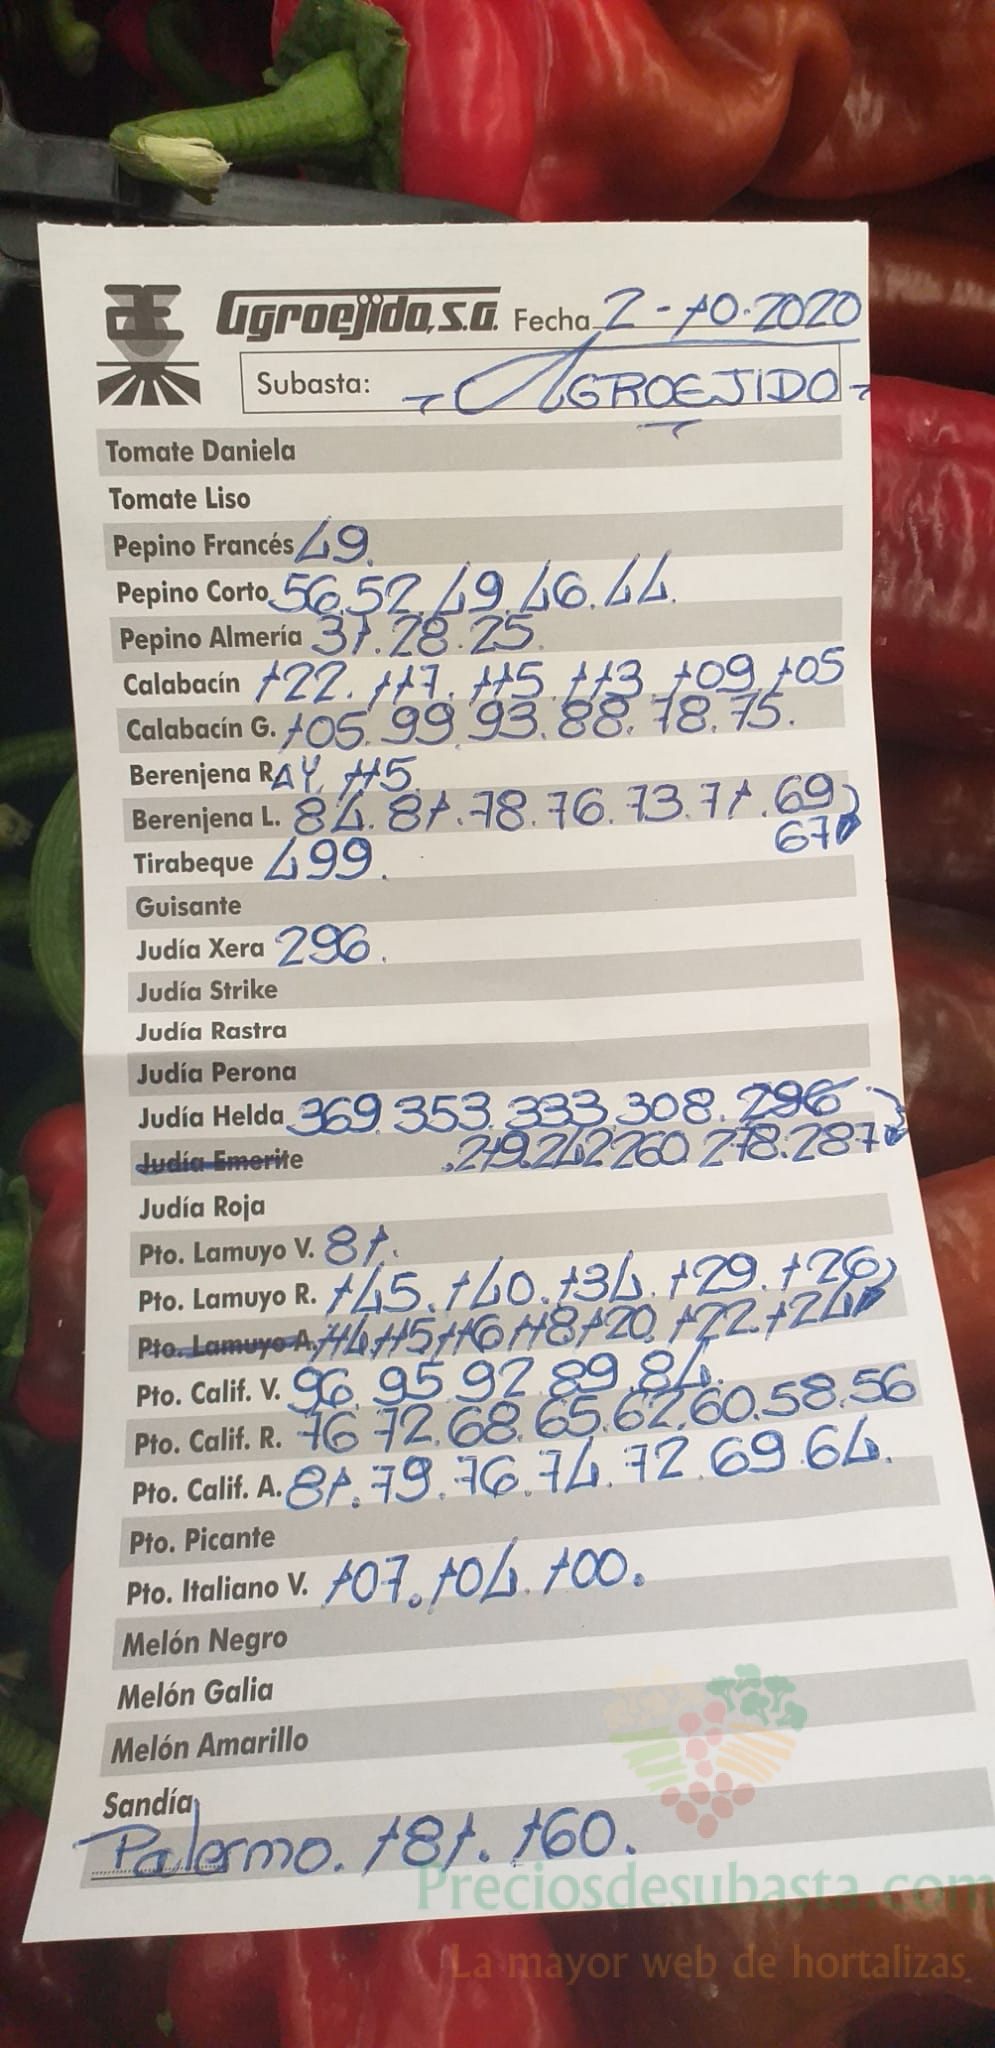 Agroejido, S.A. Fecha 2-10-2020
Subasta: AGROEJIDO
Tomate Daniela
Tomate Liso
Pepino Francés 49.
Pepino Corto 56.52.49.46.44.
Pepino Almería 31.28.25.
Calabacín 122. 117. 115. 113. 109. 105
Calabacín G. 105. 99. 93. 88. 78. 75.
Berenjena RAY. 115.
Berenjena L. 84. 81. 78. 76. 73. 71. 69
67
Tirabeque 499.
Guisante
Judía Xera 296.
Judía Strike
Judía Rastra
Judía Perona
Judía Helda 369. 353. 333. 308. 296
Judía Emerite .219.242.260. 278.287
Judía Roja
Pto. Lamuyo V. 81.
Pto. Lamuyo R. 145. 140. 134. 129. 126
Pto. Lamuyo A. 114.115.116.118.120. 122. 124
Pto. Calif. V. 96. 95. 92. 89. 84.
Pto. Calif. R. 76 72. 68. 65. 62. 60. 58. 56
Pto. Calif. A. 81. 79. 76. 74. 72. 69. 64.
Pto. Picante
Pto. Italiano V. 107. 104. 100.
Melón Negro
Melón Galia
Melón Amarillo
Sandía
Palermo. 181. 160.
Preciosdesubasta.com
La mayor web de hortalizas